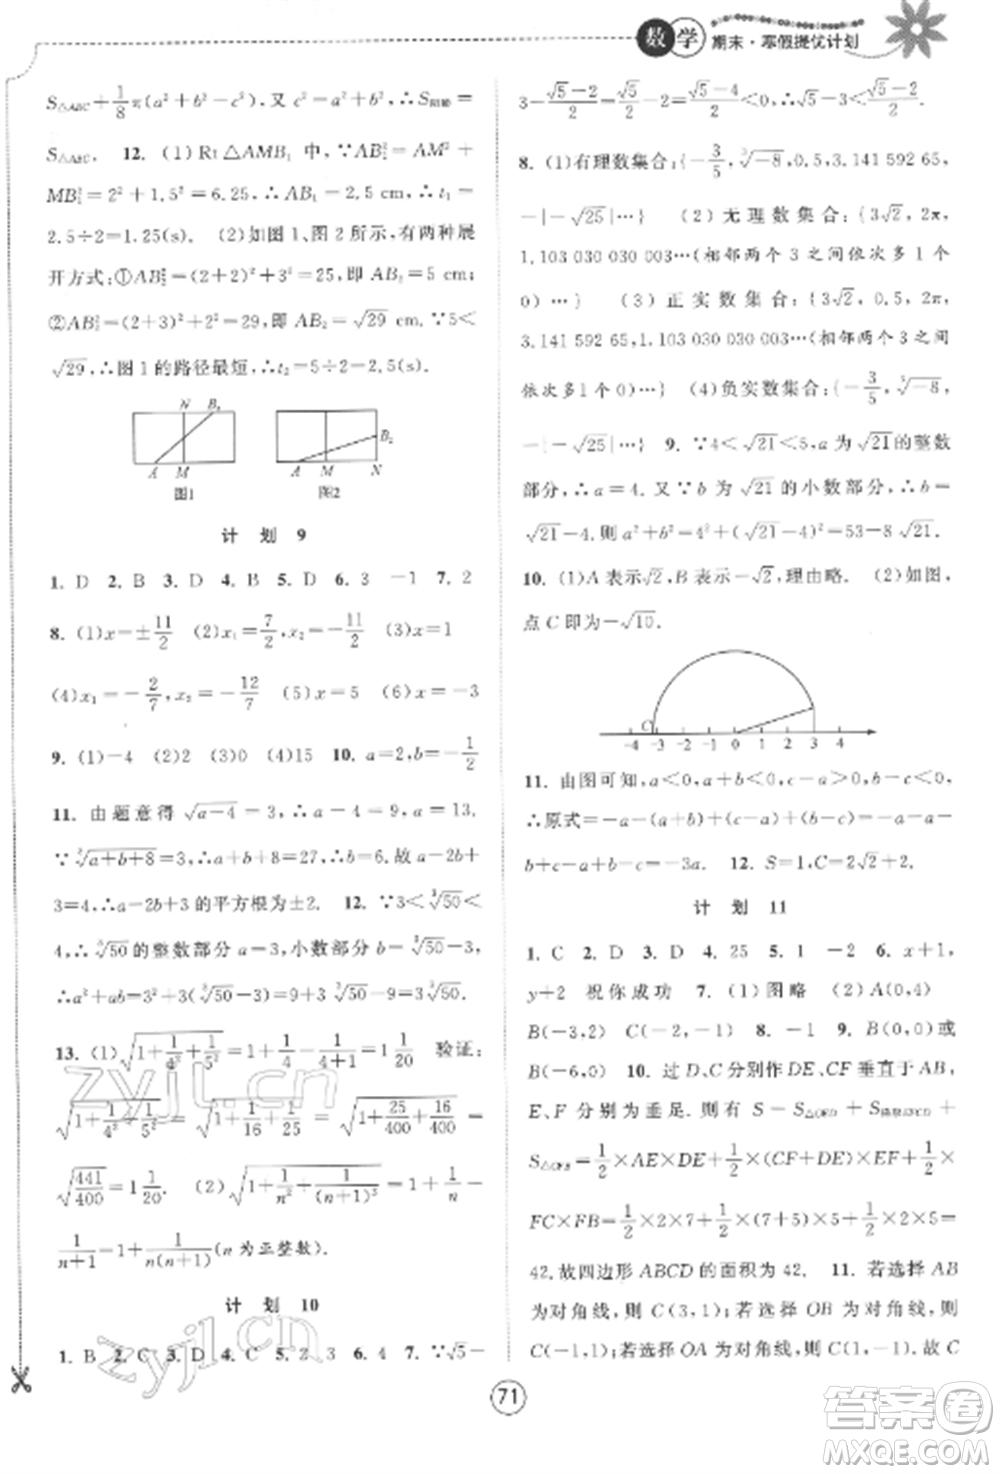 数学 期末·寒假提优计划
S△ABC+1/8π(a²+b²-c²),又 c²=a²+b²,∴S阴影=
S△ABC. 12. (1)Rt△AMB₁ 中,∵AB₁²=AM²+
MB₁²=2²+1.5²=6.25,∴AB₁=2.5 cm,∴t₁=
2.5÷2=1.25(s). (2)如图 1、图 2 所示,有两种展
开方式:①AB₂²=(2+2)²+3²=25,即 AB₂=5 cm;
②AB₂²=(2+3)²+2²=29,即 AB₂=√29 cm. ∵5<
√29,∴图 1 的路径最短,∴t₂=5÷2=2.5(s).
N B₁
A M
图1
B₂
A M N
图2
计 划 9
1. D 2. B 3. D 4. B 5. D 6. 3 -1 7. 2
8. (1)x=±11/2 (2)x₁=7/2,x₂=-5/2 (3)x=1
(4)x₁=-2/7,x₂=-12/7 (5)x=5 (6)x=-3
9. (1)-4 (2)2 (3)0 (4)15 10. a=2,b=-1/2
11. 由题意得 √(a-4)=3,∴a-4=9,∴a=13.
∵∛(a+b+8)=3,∴a+b+8=27,∴b=6.故 a-2b+
3=4,∴a-2b+3 的平方根为±2. 12. ∵3<∛50<
4,∴∛50 的整数部分 a=3,小数部分 b=∛50-3,
∴a²+ab=3²+3(∛50-3)=9+3∛50-9=3∛50.
13. (1)√(1+1/4²+1/5²)=1+1/4-1/(4+1)=1 1/20 验证:
√(1+1/4²+1/5²)=√(1+1/16+1/25)=√(1+25/400+16/400)=
√(441/400)=1 1/20. (2)√(1+1/n²+1/(n+1)²)=1+1/n-
1/(n+1)=1+1/(n(n+1))(n 为正整数).
计 划 10
1. B 2. C 3. D 4. C 5. 2 6. 4 7. ∵√5-
3-(√5-2)/2=√5/2-2=(√5-4)/2<0,∴√5-3<(√5-2)/2.
8. (1)有理数集合:{-3/5,∛-8,0.5,3.141 592 65,
-|-√25|…} (2)无理数集合:{3√2,2π,
1.103 030 030 003…(相邻两个 3 之间依次多 1 个
0)…} (3)正实数集合:{3√2,0.5,2π,
3.141 592 65,1.103 030 030 003…(相邻两个 3 之间
依次多1个0)…} (4)负实数集合:{-3/5,∛-8,
-|-√25|…} 9. ∵4<√21<5,a 为√21的整数
部分,∴a=4. 又∵b 为√21的小数部分,∴b=
√21-4.则 a²+b²=4²+(√21-4)²=53-8√21.
10. (1)A表示√2,B表示-√2,理由略. (2)如图,
点 C即为-√10.
C
-4 -3 -2 -1 0 1 2 3 4
11. 由图可知,a<0,a+b<0,c-a>0,b+c<0,
∴原式=-a-(a+b)-(c-a)-(b+c)=-a-a-
b+c-a-b-c=-3a. 12. S=1,C=2√2+2.
计 划 11
1. C 2. D 3. D 4. 25 5. 1 -2 6. x+1,
y+2 祝你成功 7. (1)图略 (2)A(0,4)
B(-3,2) C(-2,-1) 8. -1 9. B(0,0)或
B(-6,0) 10. 过 D、C分别作 DE、CF 垂直于 AB,
E、F 分别为垂足. 则有 S=S△OED+S梯形EFCD+
S△CFB=1/2×AE×DE+1/2×(CF+DE)×EF+1/2×
FC×FB=1/2×2×7+1/2×(7+5)×5+1/2×2×5=
42.故四边形 ABCD 的面积为 42. 11. 若选择 AB
为对角线,则 C(3,1);若选择 OB 为对角线,则
C(-3,1);若选择 OA 为对角线,则 C(1,-1),故 C
71
zyjl.cn
zyjl.cn
答案圈
MXQE.COM